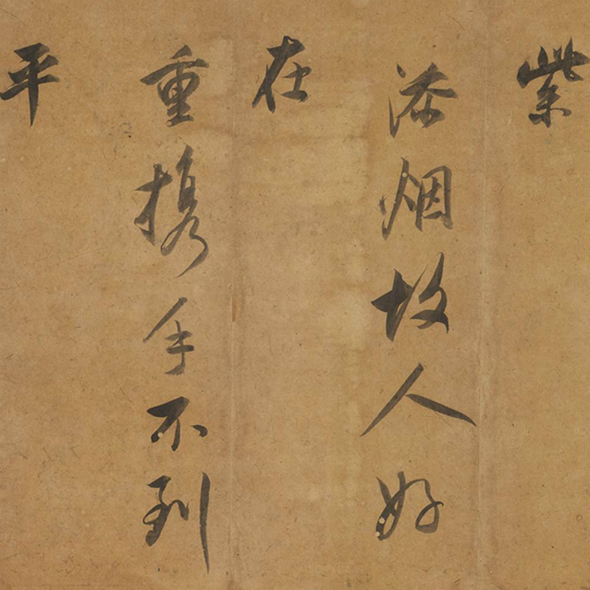 紫
添烟故人好
在
重携手不到
平